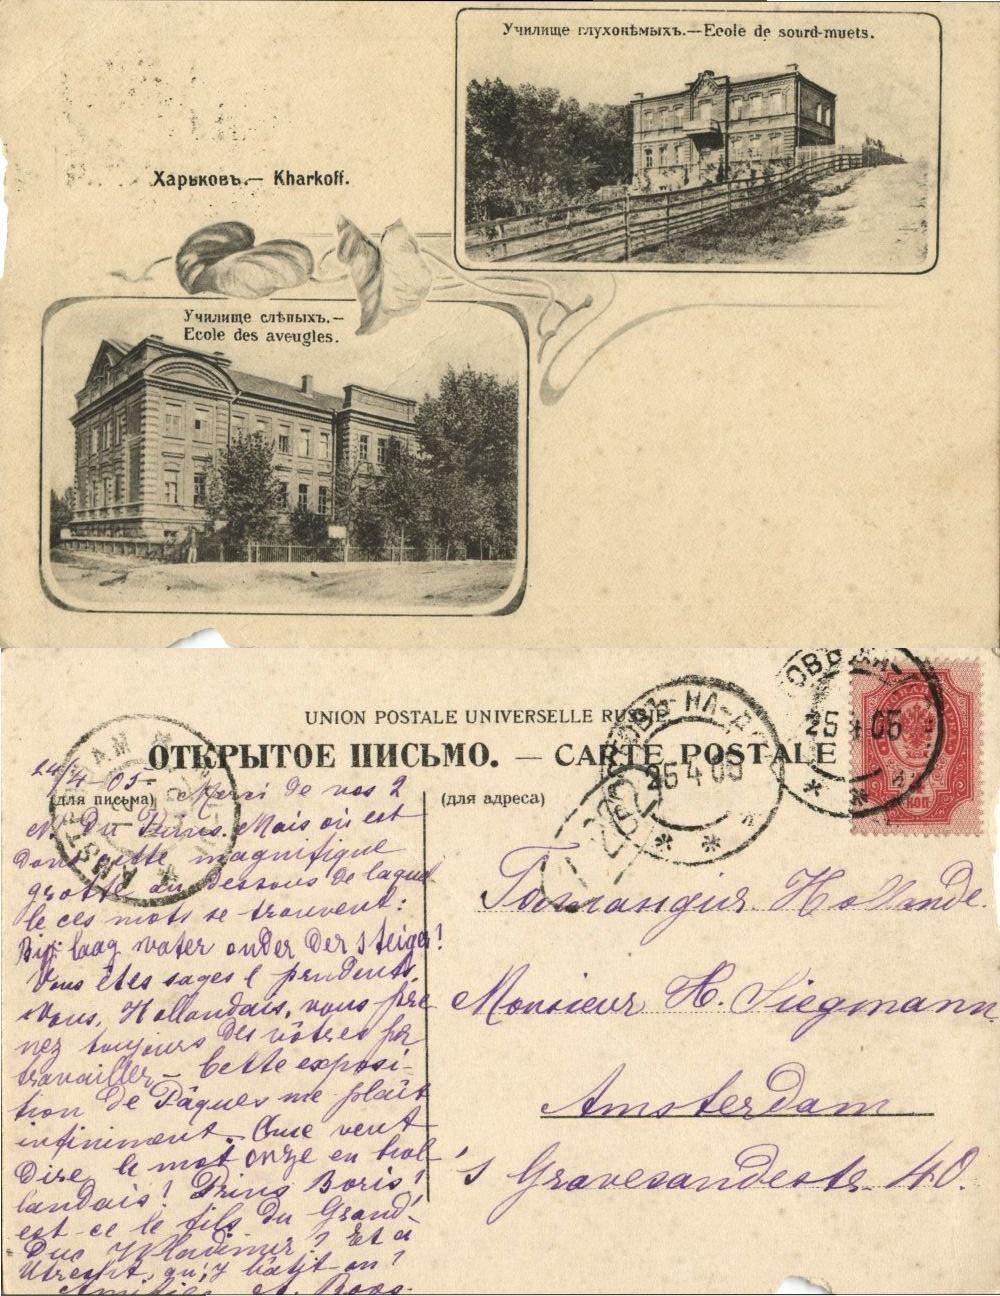 Училище глухонѣмыхъ.—Ecole de sourd-muets.
Харьковъ.— Kharkoff.
Училище слѣпыхъ.—
Ecole des aveugles.
UNION POSTALE UNIVERSELLE RUSSIE
ОТКРЫТОЕ ПИСЬМО. — CARTE POSTALE
(для письма)
(для адреса)
24/4-05-
Merci de vos 2
Mais où est
donc cette magnifique
grotte au dessous de laquel
le ces mots se trouvent:
Bij laag water onder der steiger!
Vous êtes sages & prudents,
Vous, Hollandais, vous pre
nez toujours des nôtres pr
travailler — Cette exposi-
tion de Pâques me plaît
infiniment. Que veut
dire le mot onze en hol
landais? Prins Boris!
est-ce le fils du Grand-
Duc Wladimir? Et à
Utrecht, qu'y bâtit on?
Amitiés A. Roos.
Hollande.
Monsieur H. Siegmann
Amsterdam
's Gravesandestr. 40.
НА-Д
25 4 05
25 4 05
AMST
КОП